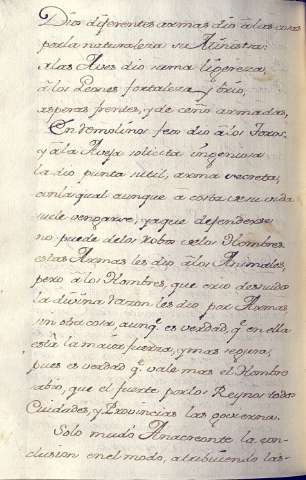 Dios diferentes armas dio à las cosas
por la naturaleza su Ministra:
a las Aves dio suma ligereza,
à los Leones fortaleza y brio,
asperas frentes, y de ceño armadas,
En domolinos feos dio a los Toros,
y à la Aveja solicita ingeniosa
la dio punta sutil, arma secreta;
con la qual aunque a costa de su vida
suele vengarse, ya que defenderse
no puede de los robos de los Hombres.
estas Armas les dio à los Animales,
pero à los Hombres, que crio desnudos
la divina razon les dio por Armas
sin otra cosa, aunq. es verdad, q. en ella
està la maior fuerza, y mas segura;
pues es verdad q. vale mas el Hombre
sabio, que el fuerte por los Reynos todos
Ciudades, y Provincias las govierna.
Solo mudò Anacreonte la con-
clusion en el modo, atribuiendo las=